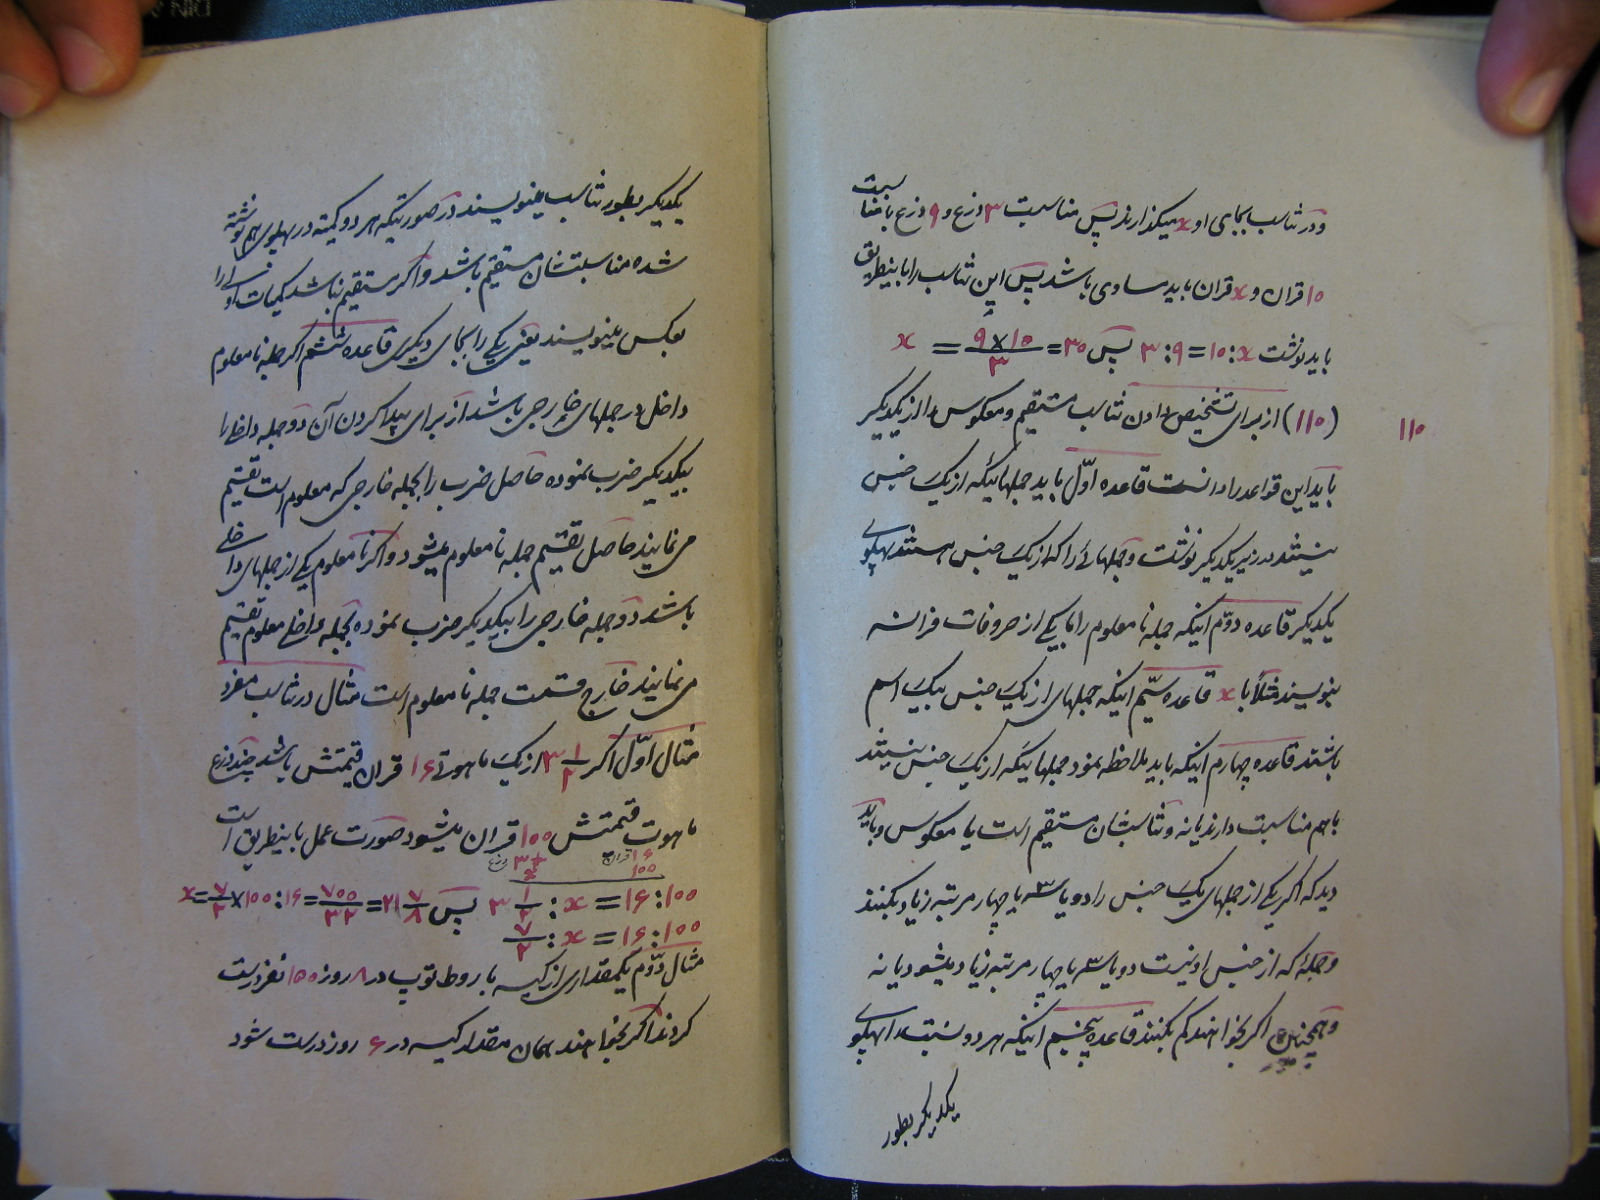 و در تناسب بجای او x میگذارند پس مناسبت ۳ ذرع و ۹ ذرع با مناسبت
۱۰ قران و x قران باید مساوی باشد پس این تناسب را باینطریق
باید نوشت x : ۱۰ = ۹ : ۳ پس ۳۰ = ۹×۱۰/۳ = x
۱۱۰
(۱۱۰) از برای تشخیص دادن تناسب مستقیم و معکوس را از یکدیگر
باید این قواعد را دانست قاعده اوّل باید جملهائیکه از یک جنس
نیستند در زیر یکدیگر نوشت و جملهائی را که از یک جنس هستند پهلوی
یکدیگر قاعده دوّم اینکه جمله نامعلوم را با یکی از حروفات فرانسه
بنویسند مثلاً با x قاعده سیّم اینکه جملهای از یک جنس بیک اسم
باشند قاعده چهارم اینکه باید ملاحظه نمود جملهائیکه از یک جنس نیستند
با هم مناسبت دارند یا نه و تناسبشان مستقیم است یا معکوس و باید
دید که اگر یکی از جملهای یک جنس را دو یا ۳ یا چهار مرتبه زیاد بکنند
و جملهٔ که از جنس او نیست دو یا ۳ یا چهار مرتبه زیاد میشود یا نه
و همچنین اگر بخواهند کم بکنند قاعده پنجم اینکه هر دو نسبت را پهلوی
یکدیگر بطور
یکدیگر بطور تناسب مینویسند در صورتیکه هر دو کمیته در پهلوی هم نوشته
شده مناسبتشان مستقیم باشد و اگر مستقیم نباشد کمیات او را
بعکس مینویسند یعنی یکی را بجای دیگری قاعده ششم اگر جمله نامعلوم
داخل در جملهای خارجی باشد از برای پیدا کردن آن دو جمله داخلی را
بیکدیگر ضرب نموده حاصل ضرب را بجمله خارجی که معلوم است تقسیم
می نمایند حاصل تقسیم جمله نامعلوم میشود و اگر نامعلوم یکی از جملهای داخلی
باشد دو جمله خارجی را بیکدیگر ضرب نموده بجمله داخلی معلوم تقسیم
می نمایند خارج قسمت جمله نامعلوم است مثال در تناسب مفرد
مثال اوّل اگر ۳ ۱/۲ از یک ماهوتی ۱۶ قران قیمتش باشد چند ذرع
ماهوت قیمتش ۱۰۰ قران میشود صورت عمل باینطریق است
۱۶ قران ۳ ۱/۲ ذرع
۱۰۰ x
۱۰۰ : ۱۶ = x : ۳ ۱/۲ پس ۲۱ ۷/۸ = ۷۰۰/۳۲ = ۱۶ : ۱۰۰ × ۷/۲ = x
۱۰۰ : ۱۶ = x : ۷/۲
مثال دوّم یکمقداری از کیسه باروط توپ در ۸ روز ۱۵۰ نفر درست
کردند اگر بخواهند همان مقدار کیسه در ۶ روز درست شود